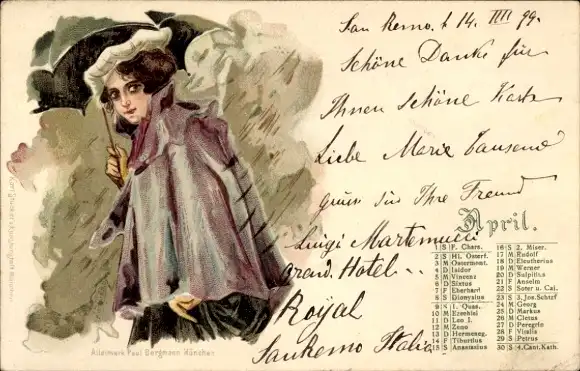 San Remo. t 14. IIII 99.
Schöne Danke für
Ihnen schöne Karte
Liebe Marie Tausend
gruss für Ihre Freund
Luigi Martemucci
Grand. Hotel ..
Royal
San Remo Italia
April.
1 S F. Chars.
2 S Hl. Osterf.
3 M Ostermont.
4 D Isidor
5 M Vincenz
6 D Sixtus
7 F Eberhard
8 S Dionysius
9 S 1. Quas.
10 M Ezechiel
11 D Leo I.
12 M Zeno
13 D Hermeneg.
14 F Tiburtius
15 S Anastasius
16 S 2. Miser.
17 M Rudolf
18 D Eleutherius
19 M Werner
20 D Sulpitius
21 F Anselm
22 S Soter u. Caj.
23 S 3. Jos. Schtzf
24 M Georg
25 D Markus
26 M Cletus
27 D Peregrin
28 F Vitalis
29 S Petrus
30 S 4. Cant. Kath.
Alleinverk Paul Bergmann München